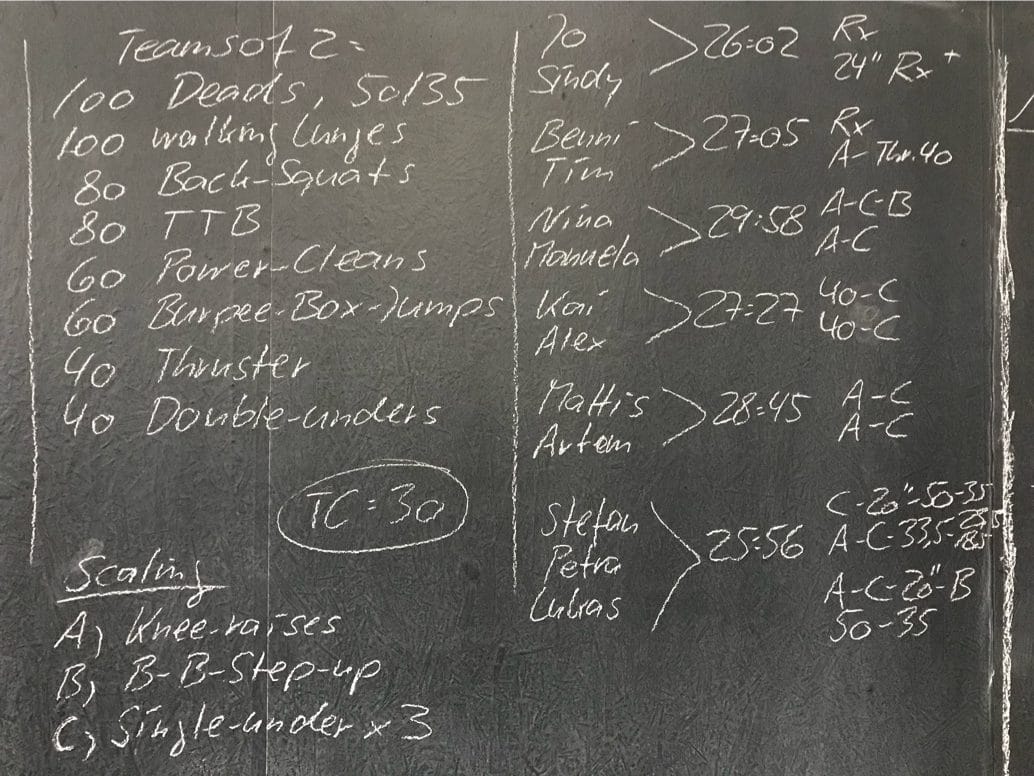 Teams of 2:
100 Deads, 50/35
100 walking lunges
80 Back-Squats
80 TTB
60 Power-Cleans
60 Burpee-Box-Jumps
40 Thruster
40 Double-unders
TC=30
Scaling
A) Knee-raises
B) B-B-Step-up
C) Single-under x 3
Jo
Sindy
26:02
Rx
24" Rx+
Benni
Tim
27:05
Rx
A-Thr.40
Nina
Manuela
29:58
A-C-B
A-C
Kai
Alex
27:27
40-C
40-C
Mattis
Artem
28:45
A-C
A-C
Stefan
Petra
Lukas
25:56
C-20"-50-35
A-C-33,5-
A-C-20"-B
50-35